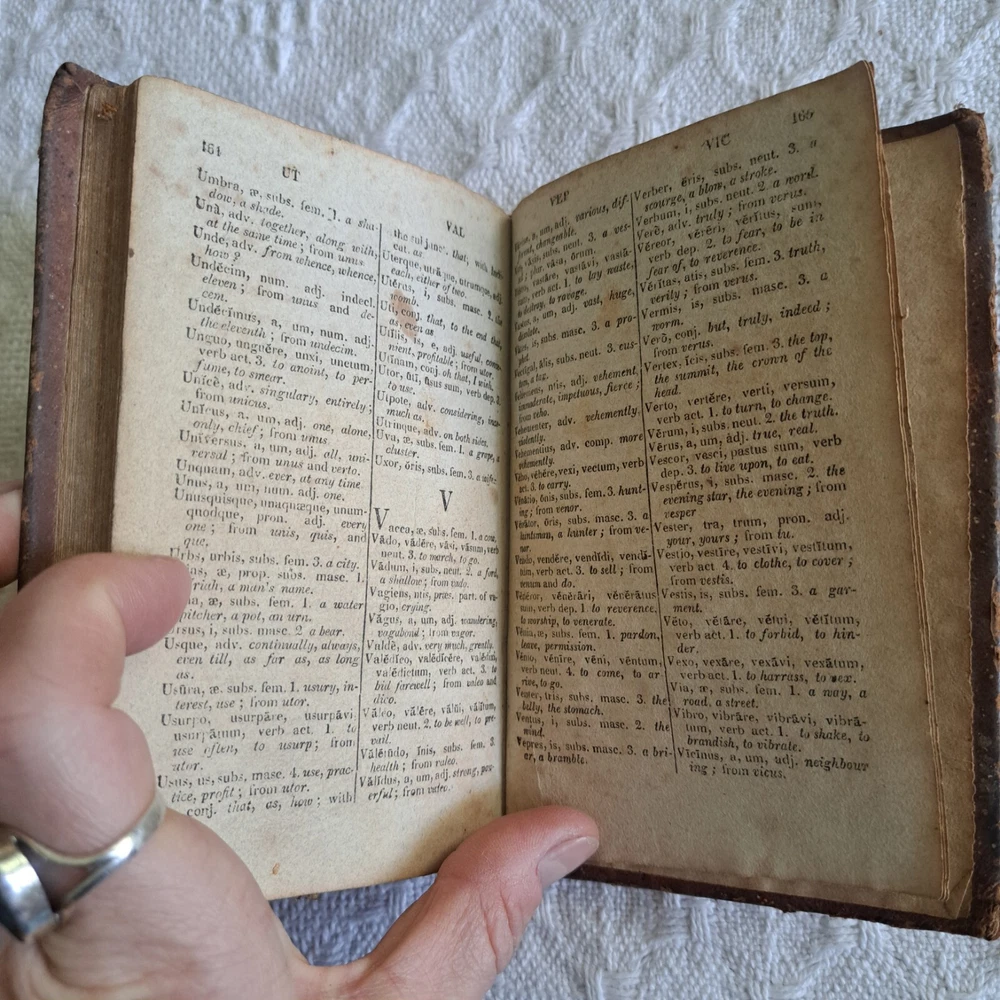 164
UT
VAL
Umbra, æ. subs. fem. 1. a sha-
dow, a shade.
Unà, adv. together, along with,
at the same time; from unus
Unde, adv. from whence, whence,
how?
Undĕcim, num. adj. indecl.
eleven; from unus and de-
cem.
Undĕcĭmus, a, um, num. adj.
the eleventh; from undecim.
Unguo, unguĕre, unxi, unctum,
verb act. 3. to anoint, to per-
fume, to smear.
Unĭcè, adv. singulary, entirely;
from unicus.
Unĭcus, a, um, adj. one, alone,
only, chief; from unus
Universus, a, um, adj. all, uni-
versal; from unus and verto.
Unquam, adv. ever, at any time.
Unus, a, um, num. adj. one.
Unusquisque, unaquæque, unum-
quodque, pron. adj. every
one; from unis, quis, and
que.
Urbs, urbis, subs. fem. 3. a city.
æ, prop. subs. masc. 1.
a man's name.
æ, subs. fem. 1. a water
pitcher, a pot, an urn.
i, subs. masc. 2 a bear.
Usque, adv. continually, always,
even till, as far as, as long
as.
Usūra, æ. subs. fem. 1. usury, in-
terest, use; from utor.
Usurpo, usurpāre, usurpāvi,
usurpātum, verb act. 1. to
use often, to usurp; from
utor.
Usus, us, subs. masc. 4. use, prac-
tice, profit; from utor.
conj. that, as, how; with
the subjunc. that; with
cat. as.
Uterque, utrăque, utrumque,
each, either of two.
Utĕrus, i, subs. masc. 2. the
womb.
Uti, conj. that, to the end that,
as, even as
Utĭlis, is, e, adj. useful,
nient, profitable; from utor.
Utĭnam, conj. oh that, I wish.
Utor, ūti, ūsus sum, verb dep. 3.
to use.
Utpote, adv. considering,
much as.
Utrinque, adv. on both sides.
Uva, æ subs. fem. 1. a grape, a
cluster.
Uxor, ōris, subs. fem. 3. a wife.
V
Vacca, æ, subs. fem. 1. a cow.
Vādo, vādĕre, vāsi, vāsum, verb
neut. 3. to march, to go.
Vădum, i, subs. neut. 2. a ford,
a shallow; from vado.
Vagiens, ntis, præs. part. of va-
gio, crying.
Văgus, a, um, adj. wandering,
vagabond; from vagor.
Valdè, adv. very much, greatly.
Valĕdīco, valĕdīcĕre, valĕdixi,
valĕdictum, verb act. 3. to
bid farewell; from valeo and
dico.
Văleo, vălēre, vălui, vălĭtum,
verb neut. 2. to be well, to pre-
vail.
Vălētūdo, ĭnis, subs. fem. 3.
health; from valeo.
Vălĭdus, a, um, adj. strong, pow-
erful; from valeo.
VEP
VIC
165
a, um, adj. various, dif-
ferent, changeable.
vāsis, subs. neut. 3. a ves-
sel; plur. vāsa, ōrum.
vastāre, vastāvi, vastā-
tum, verb act. 1. to lay waste,
to destroy, to ravage.
a, um, adj. vast, huge,
is, subs. masc. 3. a pro-
phet.
ālis, subs. neut. 3. cus-
tom, a tax.
ntis, adj. vehement,
immoderate, impetuous, fierce;
from veho.
Vehementer, adv. vehemently,
violently.
Vehementius, adv. comp. more
vehemently.
Vĕho, vĕhĕre, vexi, vectum, verb
act. 3. to carry.
Vēnātio, ōnis, subs. fem. 3. hunt-
ing; from venor.
Vēnātor, ōris, subs. masc. 3. a
huntsman, a hunter; from ve-
nor.
Vendo, vendĕre, vendĭdi, vendĭ-
tum, verb act. 3. to sell; from
venum and do.
Vĕnĕror, vĕnĕrāri, vĕnĕrātus
sum, verb dep. 1. to reverence,
to worship, to venerate.
Vĕnia, æ, subs. fem. 1. pardon,
leave, permission.
Vĕnio, vĕnīre, vēni, ventum,
verb neut. 4. to come, to ar-
rive, to go.
Venter, tris, subs. masc. 3. the
belly, the stomach.
Ventus, i, subs. masc. 2. the
wind.
Vepres, is, subs. masc. 3. a bri-
ar, a bramble.
Verber, ĕris, subs. neut. 3. a
scourge, a blow, a stroke.
Verbum, i, subs. neut. 2. a word.
Verè, adv. truly; from verus.
Vĕreor, vĕrēri, vĕrĭtus, sum,
verb dep. 2. to fear, to be in
fear of, to reverence.
Vērĭtas, atis, subs. fem. 3. truth,
verity; from verus.
Vermis, is, subs. masc. 3. a
worm.
Verò, conj. but, truly, indeed;
from verus.
Vertex, ĭcis, subs. fem. 3. the top,
the summit, the crown of the
head.
Verto, vertĕre, verti, versum,
verb act. 1. to turn, to change.
Vērum, i, subs. neut. 2. the truth.
Vērus, a, um, adj. true, real.
Vescor, vesci, pastus sum, verb
dep. 3. to live upon, to eat.
Vespĕrus, i, subs. masc. 2. the
evening star, the evening; from
vesper
Vester, tra, trum, pron. adj.
your, yours; from tu.
Vestio, vestīre, vestīvi, vestītum,
verb act 4. to clothe, to cover;
from vestis.
Vestis, is, subs. fem. 3. a gar-
ment.
Vĕto, vĕtāre, vĕtui, vĕtĭtum,
verb act. 1. to forbid, to hin-
der.
Vexo, vexāre, vexāvi, vexātum,
verb act. 1. to harrass, to vex.
Via, æ, subs. fem. 1. a way, a
road, a street.
Vibro, vibrāre, vibrāvi, vibrā-
tum, verb act. 1. to shake, to
brandish, to vibrate.
Vīcīnus, a, um, adj. neighbour
ing; from vicus.